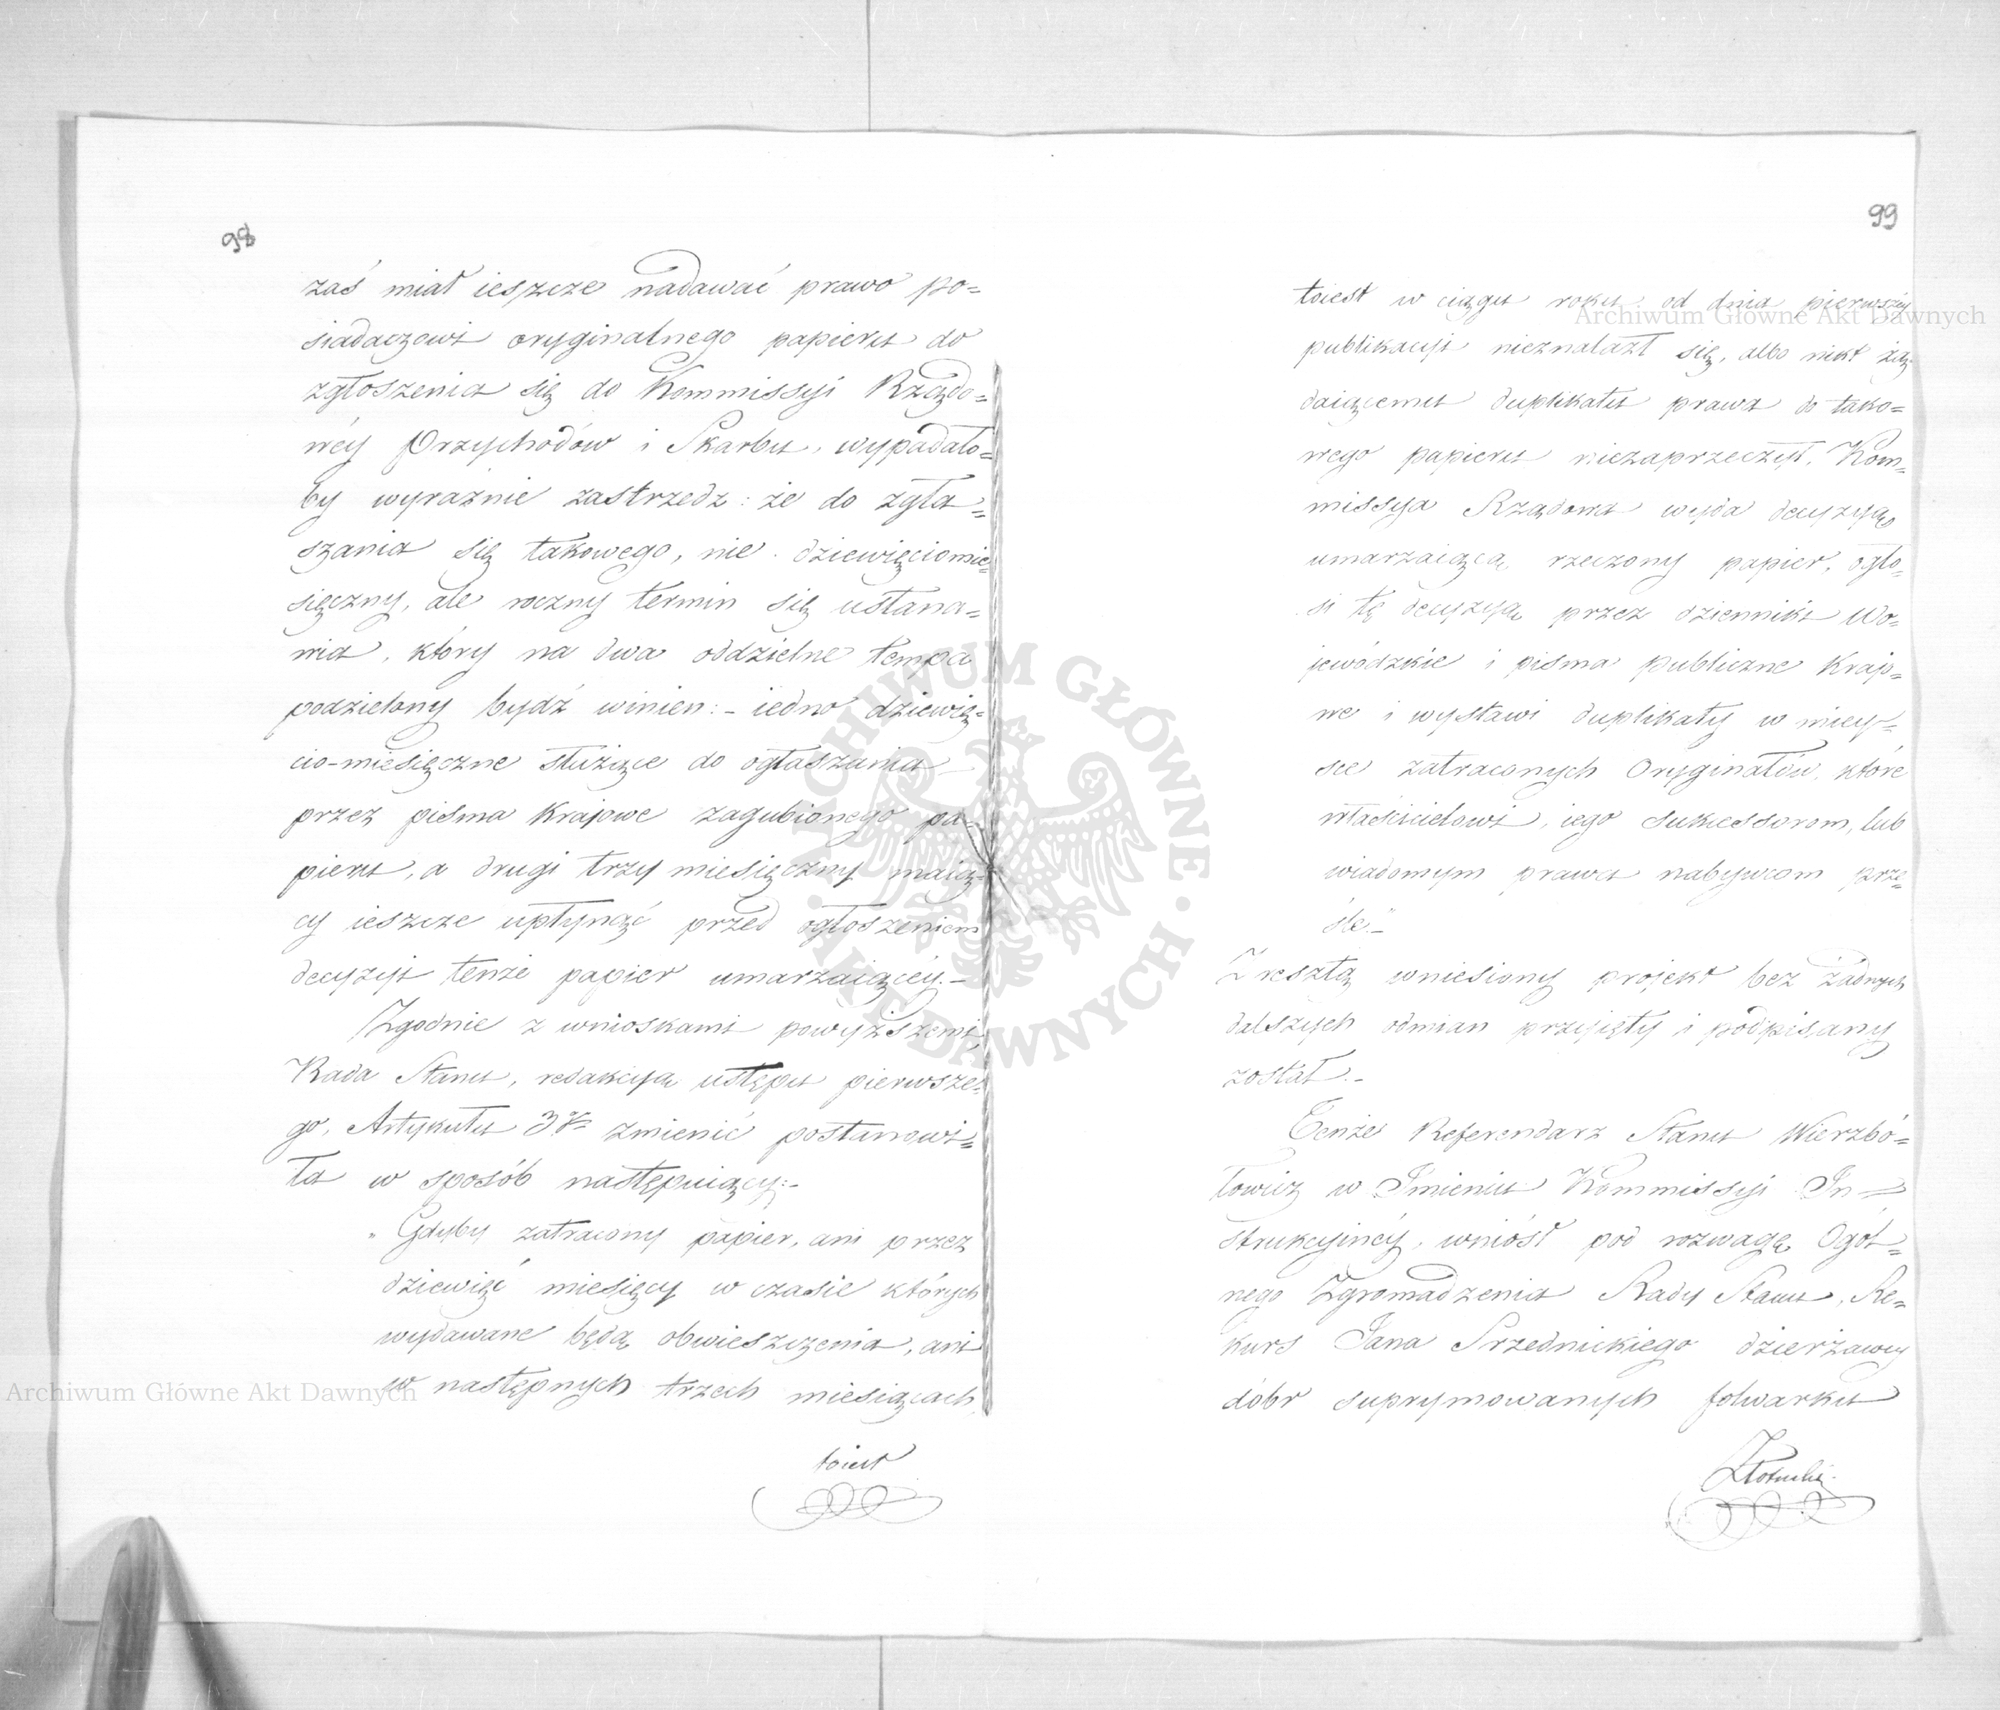 98
zaś miał ieszcze nadawać prawo po=
siadaczowi oryginalnego papieru do
zgłoszenia się do Kommissyi Rządo=
wéy Przychodów i Skarbu, wypadało=
by wyraźnie zastrzedz: że do zgła=
szania się takowego, nie dziewięciomie=
sięczny, ale roczny termin się ustana=
wia, który na dwa oddzielne tempa
podzielony bydź winien: – iedno dziewię=
cio-miesięczne służące do ogłaszania
przez pisma Krajowe zagubionego pa=
pieru, a drugi trzy miesięczny maią=
cy ieszcze upłynąć przed ogłoszeniem
decyzyi tenże papier umarzaiącéy.–
Zgodnie z wnioskami powyższemi
Rada Stanu, redakcyą ustępu pierwsze=
go, Artykułu 3go zmienić postanowi=
ła w sposób następuiący:–
„Gdyby zatracony papier, ani przez
dziewięć miesięcy w czasie których
wydawane będą obwieszczenia, ani
w następnych trzech miesiącach
toiest
99
toiest w ciągu roku od dnia pierwszéy
publikacyi nieznalazł się, albo nikt żą=
daiącemu duplikatu prawa do tako=
wego papieru niezaprzeczył, Kom=
missya Rządowa wyda decyzyą
umarzaiącą rzeczony papier, ogło=
si tę decyzyą przez dzienniki Wo=
jewódzkie i pisma publiczne Krajo=
we i wystawi duplikaty w miey=
sce zatraconych Oryginałów, które
właścicielowi, iego sukcessorom, lub
wiadomym prawa nabywcom prze=
śle.”–
Zresztą wniesiony projekt bez żadnych
dalszych odmian przyięty i podpisany
został.–
Tenże Referendarz Stanu Wierzbo=
łowicz w Imieniu Kommissyi In=
strukcyinéy, wniósł pod rozwagę Ogól=
nego Zgromadzenia Rady Stanu, Re=
kurs Jana Srzednickiego dzierżawcy
dóbr suprymowanych folwarku
Archiwum Główne Akt Dawnych
Archiwum Główne Akt Dawnych
ARCHIWUM GŁÓWNE AKT DAWNYCH